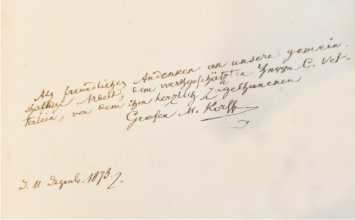 Als freundliches Andenken an unsere gemein-
schaftliche Arbeit, dem werthgeschätzten Herrn C. Vet-
terlein, von dem ihm herzlich zugethanenen
Grafen M. Korff
d. 11 Dezemb. 1873.